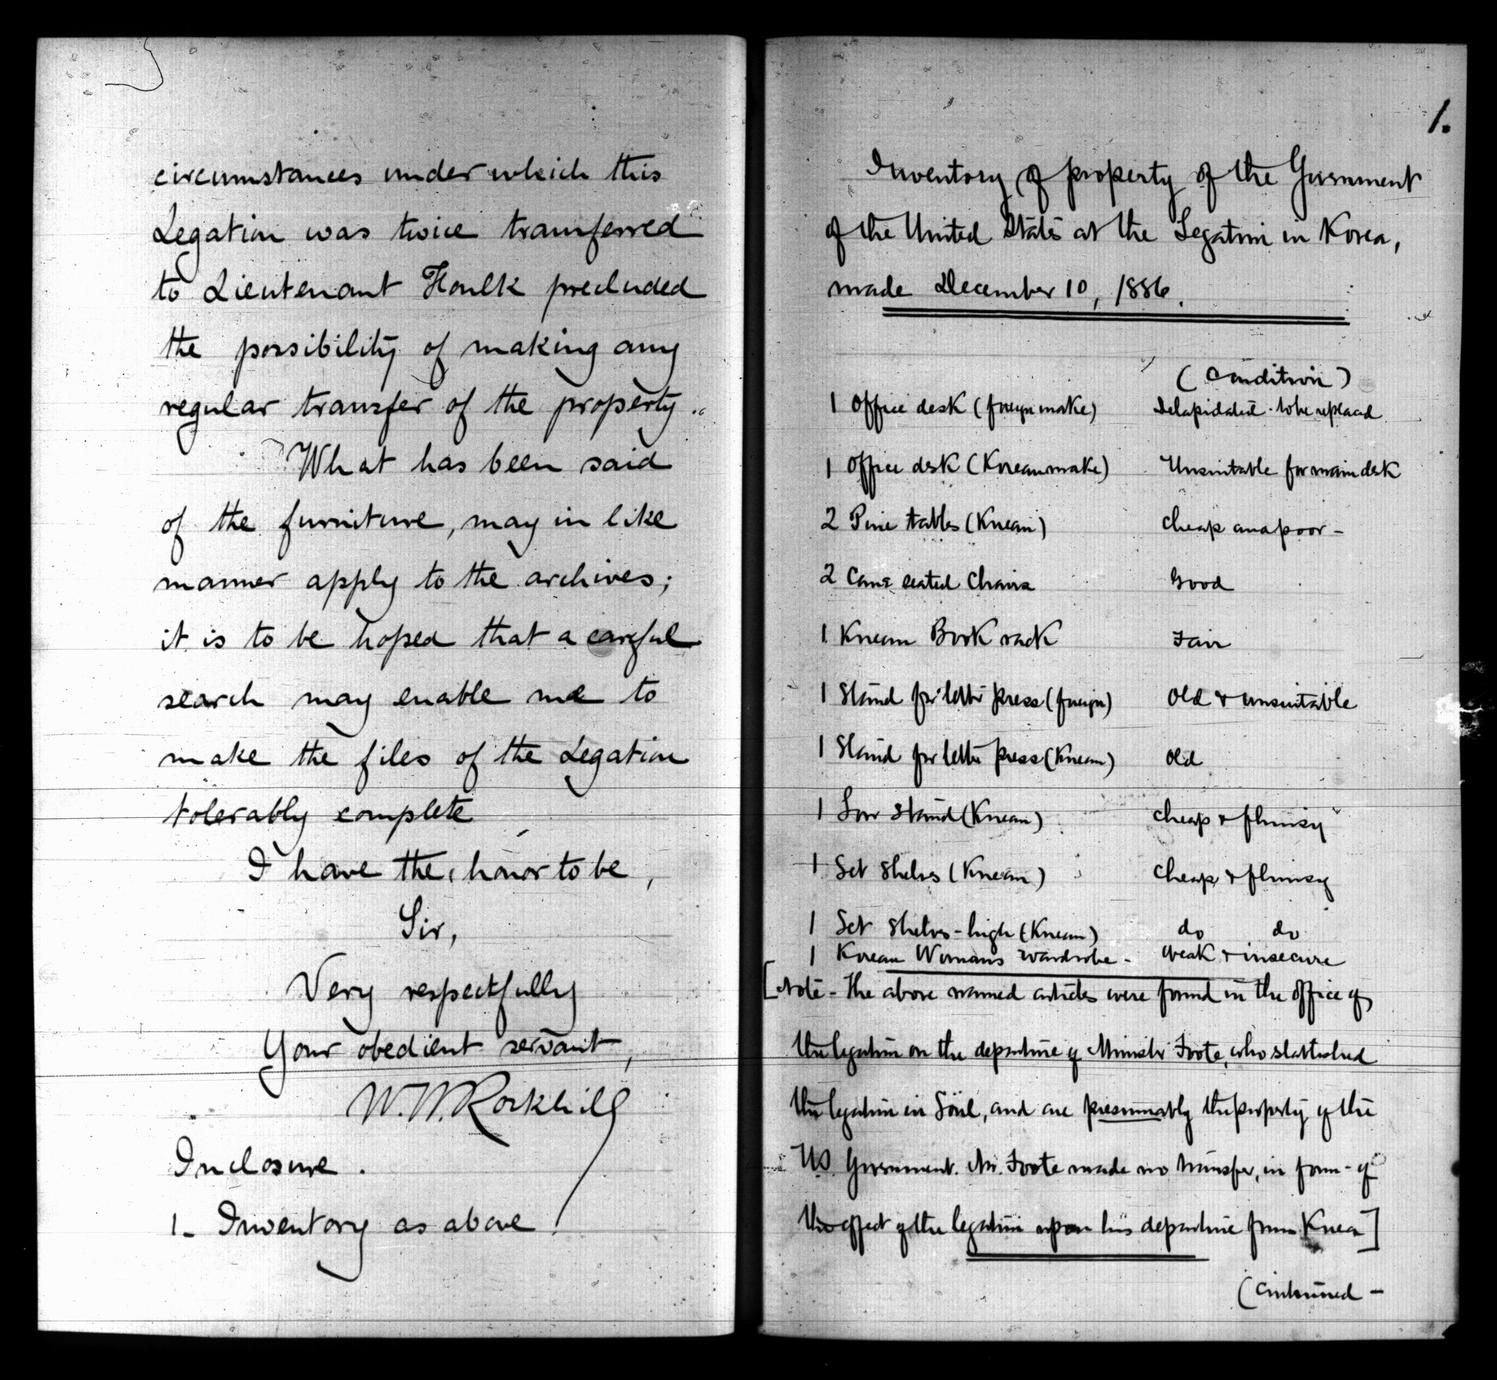 circumstances under which this
Legation was twice transferred
to Lieutenant Foulk precluded
the possibility of making any
regular transfer of the property.
What has been said
of the furniture, may in like
manner apply to the archives;
it is to be hoped that a careful
search may enable me to
make the files of the Legation
tolerably complete
I have the honor to be,
Sir,
Very respectfully
Your obedient servant,
W. W. Rockhill
Inclosure.
1- Inventory as above
1.
Inventory of property of the Government
of the United States at the Legation in Korea,
made December 10, 1886.
(Condition)
1 Office desk (foreign make) Delapidated. to be replaced
1 Office desk (Korean make) Unsuitable for main desk
2 Pine tables (Korean) Cheap and poor -
2 Cane seated Chairs Good
1 Korean Book rack Fair
1 Stand for letter press (foreign) Old & unsuitable
1 Stand for letter press (Korean) Old
1 Low Stand (Korean) Cheap & flimsy
1 Set Shelves (Korean) Cheap & flimsy
1 Set Shelves - high (Korean) do do
1 Korean Woman's wardrobe - Weak & insecure
[Note - The above named articles were found in the office of
the legation on the departure of Minister Foote, who established
the legation in Söul, and are presumably the property of the
US. Government. Mr. Foote made no transfer, in form - of
the effect of the legation upon his departure from Korea]
(Continued -